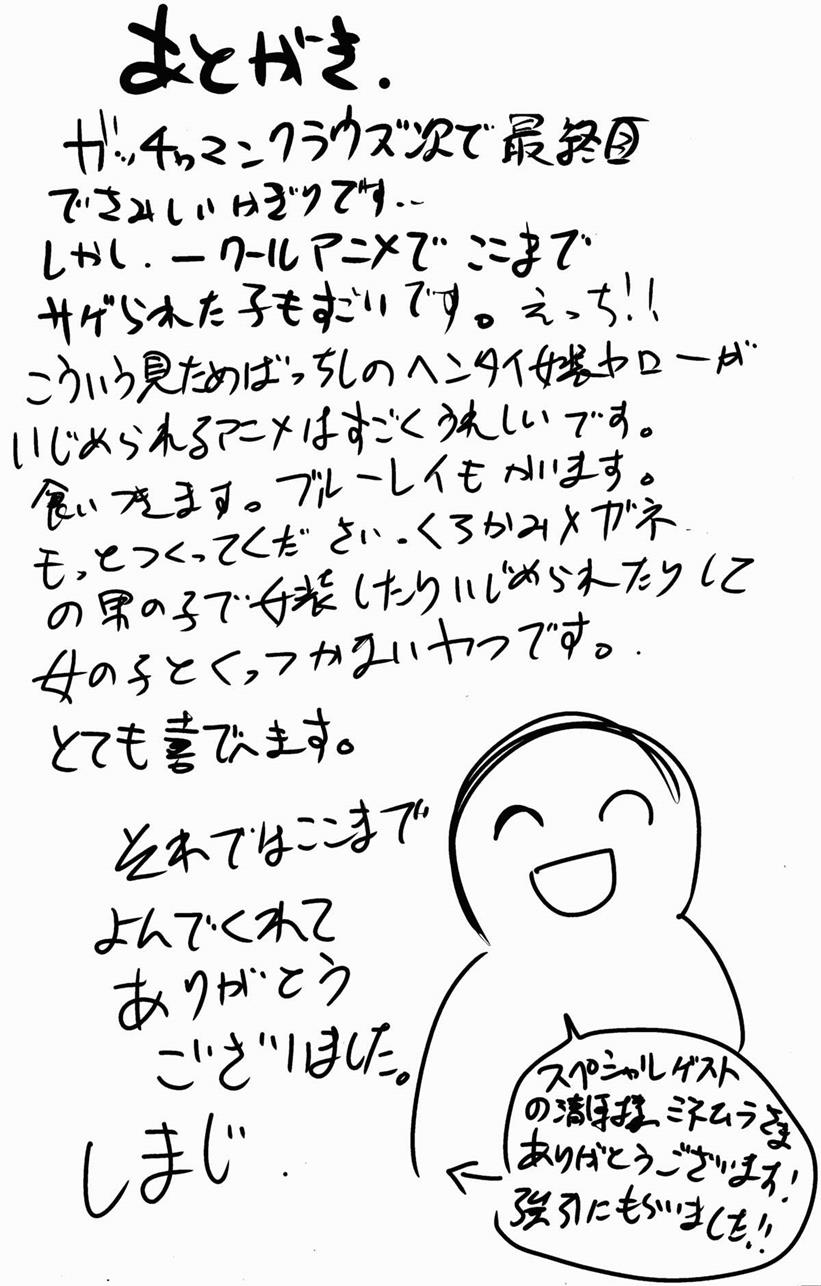 あとがき.
ガッチャマンクラウズ次で最終回
でさみしいかぎりです..
しかし.一クールアニメでここまで
サゲられた子もすごいです。えっち!!
こういう見ためばっちしのヘンタイ女装ヤローが
いじめられるアニメはすごくうれしいです。
食いつきます。ブルーレイもかいます。
もっとつくってください.くろかみメガネ
の男の子で女装したりいじめられたりして
女の子とくっつかないやつです。
とても喜びます。
それではここまで
よんでくれて
ありがとう
ございました。
しまじ.
スペシャルゲスト
の清保様、ミネムラさま
ありがとうございます!
強引にもらいました!!